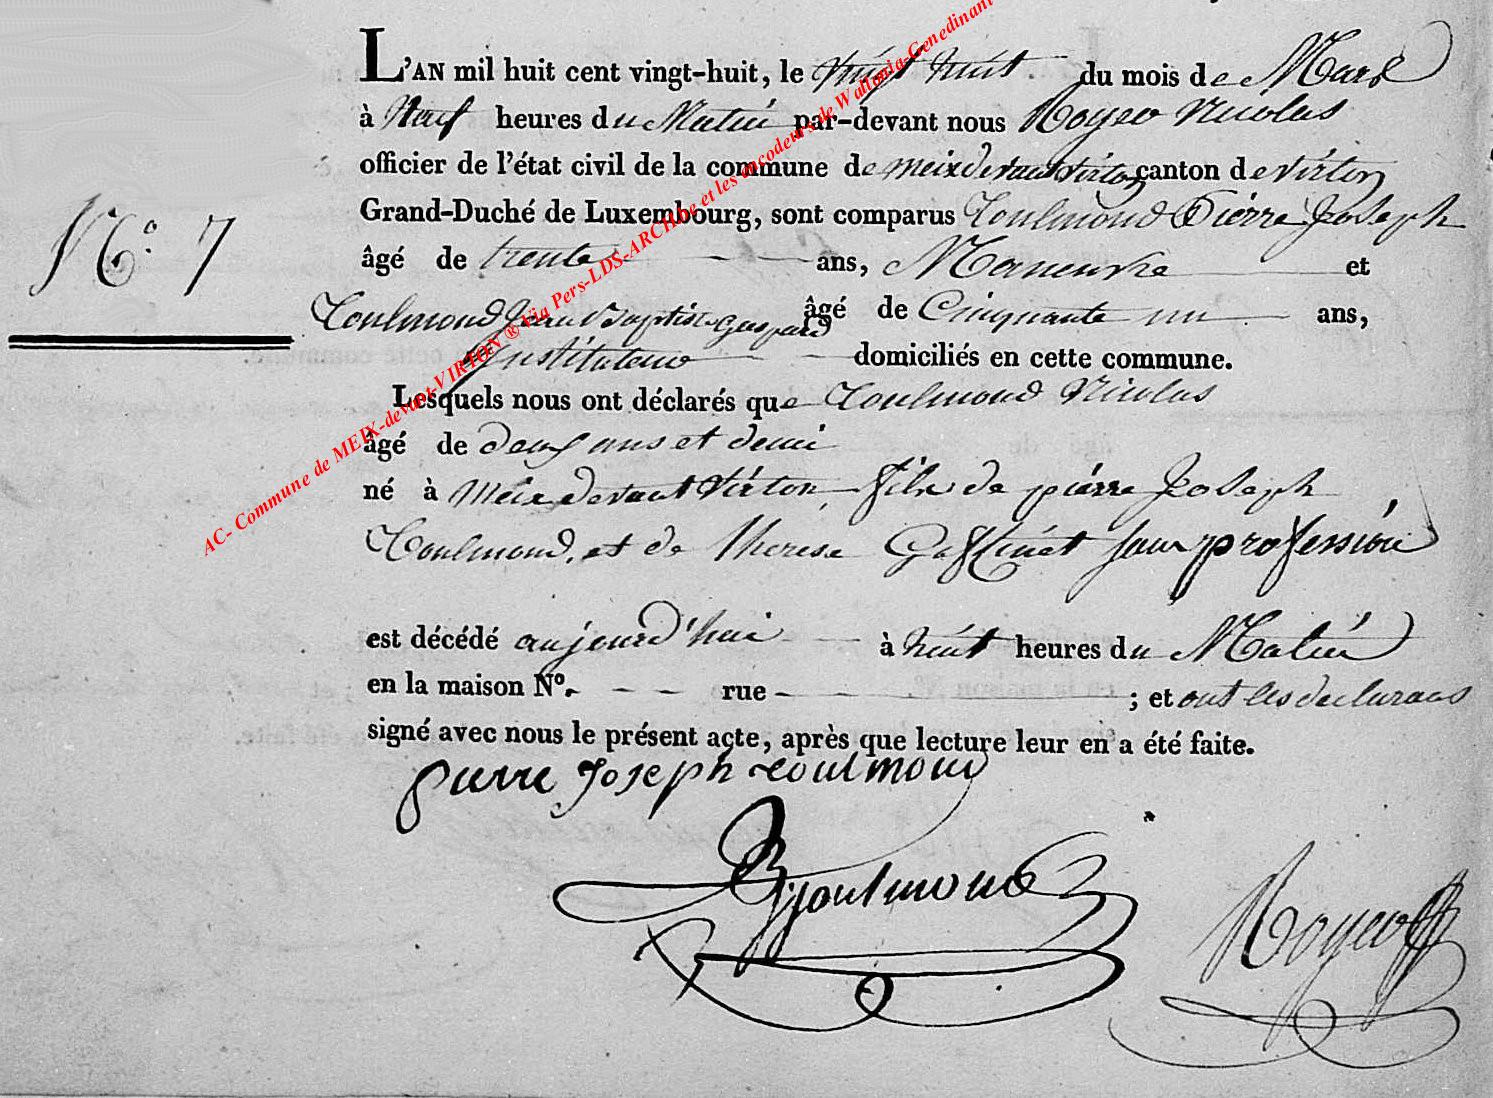 L'AN mil huit cent vingt-huit, le vingt huit du mois de Mars
à Neuf heures du Matin par-devant nous Royer Nicolas
officier de l'état civil de la commune de meix devant virton canton de virton
Grand-Duché de Luxembourg, sont comparus Toulmond Pierre Joseph
N.° 7
âgé de trente ans, Maneuvre et
Toulmond Jean Baptiste Gaspard âgé de Cinquante un ans,
Instituteur domiciliés en cette commune.
Lesquels nous ont déclarés que Toulmond Nicolas
âgé de deux ans et demi
né à Meix devant Virton fils de pierre Joseph
Toulmond, et de therese sans profession
est décédé aujourd'hui à huit heures du Matin
en la maison N°. rue ; et ont les declarans
signé avec nous le présent acte, après que lecture leur en a été faite.
pierre Joseph toulmond
Toulmond
Royer
AC- Commune de MEIX-devant-VIRTON ® Via Pers-LDS-ARCHbe et les encodeurs de Wallonia-Genedinant